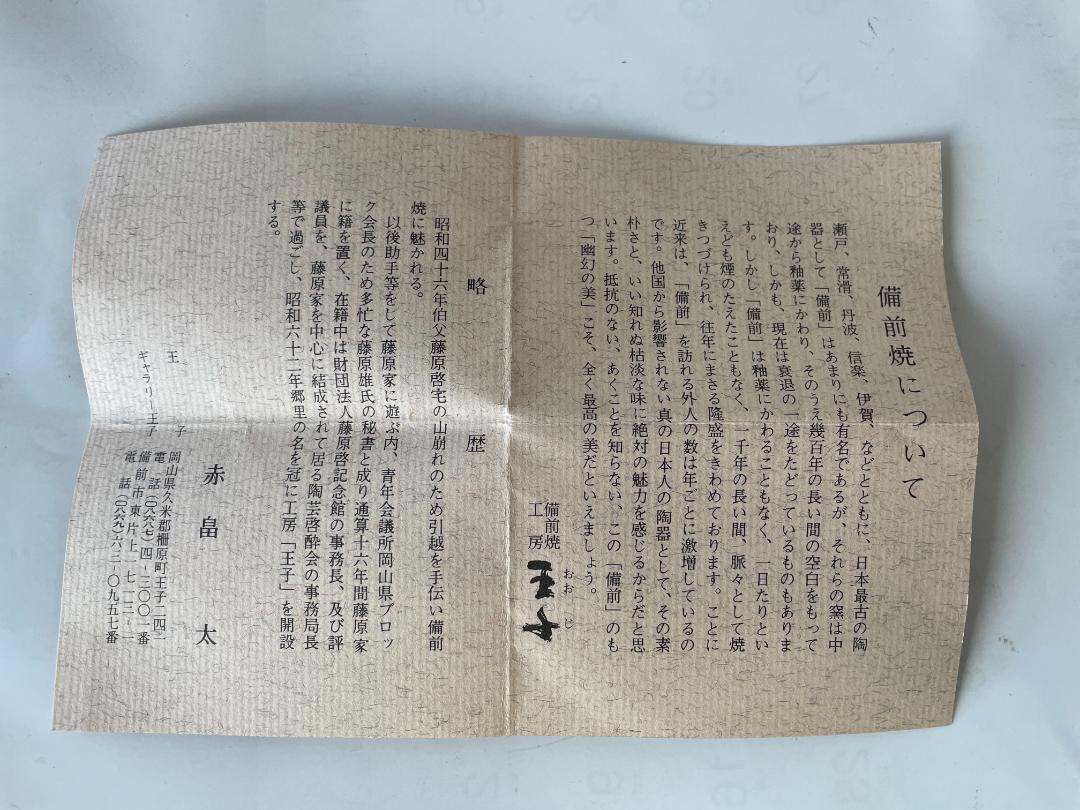 備前焼について
瀬戸、常滑、丹波、信楽、伊賀、などとともに、日本最古の陶
器として「備前」はあまりにも有名であるが、それらの窯は中
途から釉薬にかわり、そのうえ幾百年の長い間の空白をもって
おり、しかも、現在は衰退の一途をたどっているものもありま
す。しかし「備前」は釉薬にかわることもなく、一日たりとい
えども煙のたえたこともなく、一千年の長い間、脈々として焼
きつづけられ、往年にまさる隆盛をきわめております。ことに
近来は、「備前」を訪れる外人の数は年ごとに激増しているの
です。他国から影響されない真の日本人の陶器として、その素
朴さと、いい知れぬ枯淡な味に絶対の魅力を感じるからだと思
います。抵抗のない、あくことを知らない、この「備前」のも
つ「幽幻の美」こそ、全く最高の美だといえましょう。
備前焼
工房
王子
おおじ
略歴
昭和四十六年伯父藤原啓宅の山崩れのため引越を手伝い備前
焼に魅かれる。
以後助手等をして藤原家に遊ぶ内、青年会議所岡山県ブロッ
ク会長のため多忙な藤原雄氏の秘書と成り通算十六年間藤原家
に籍を置く、在籍中は財団法人藤原啓記念館の事務長、及び評
議員を、藤原家を中心に結成されて居る陶芸啓酔会の事務局長
等で過ごし、昭和六十二年郷里の名を冠に工房「王子」を開設
する。
赤畠太
王子 岡山県久米郡柵原町王子二四二
電話(〇八六八七)四-二〇〇一番
ギャラリー王子 備前市東片上七一三-一
電話(〇八六九)六三-〇九五七番